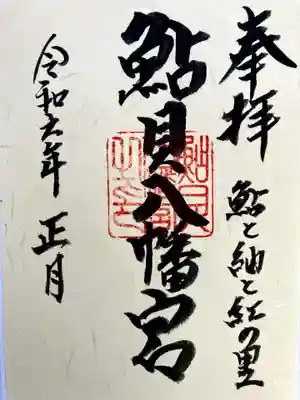 奉拝
鮎と紬と紅の里
鮎貝八幡宮
令和六年 正月